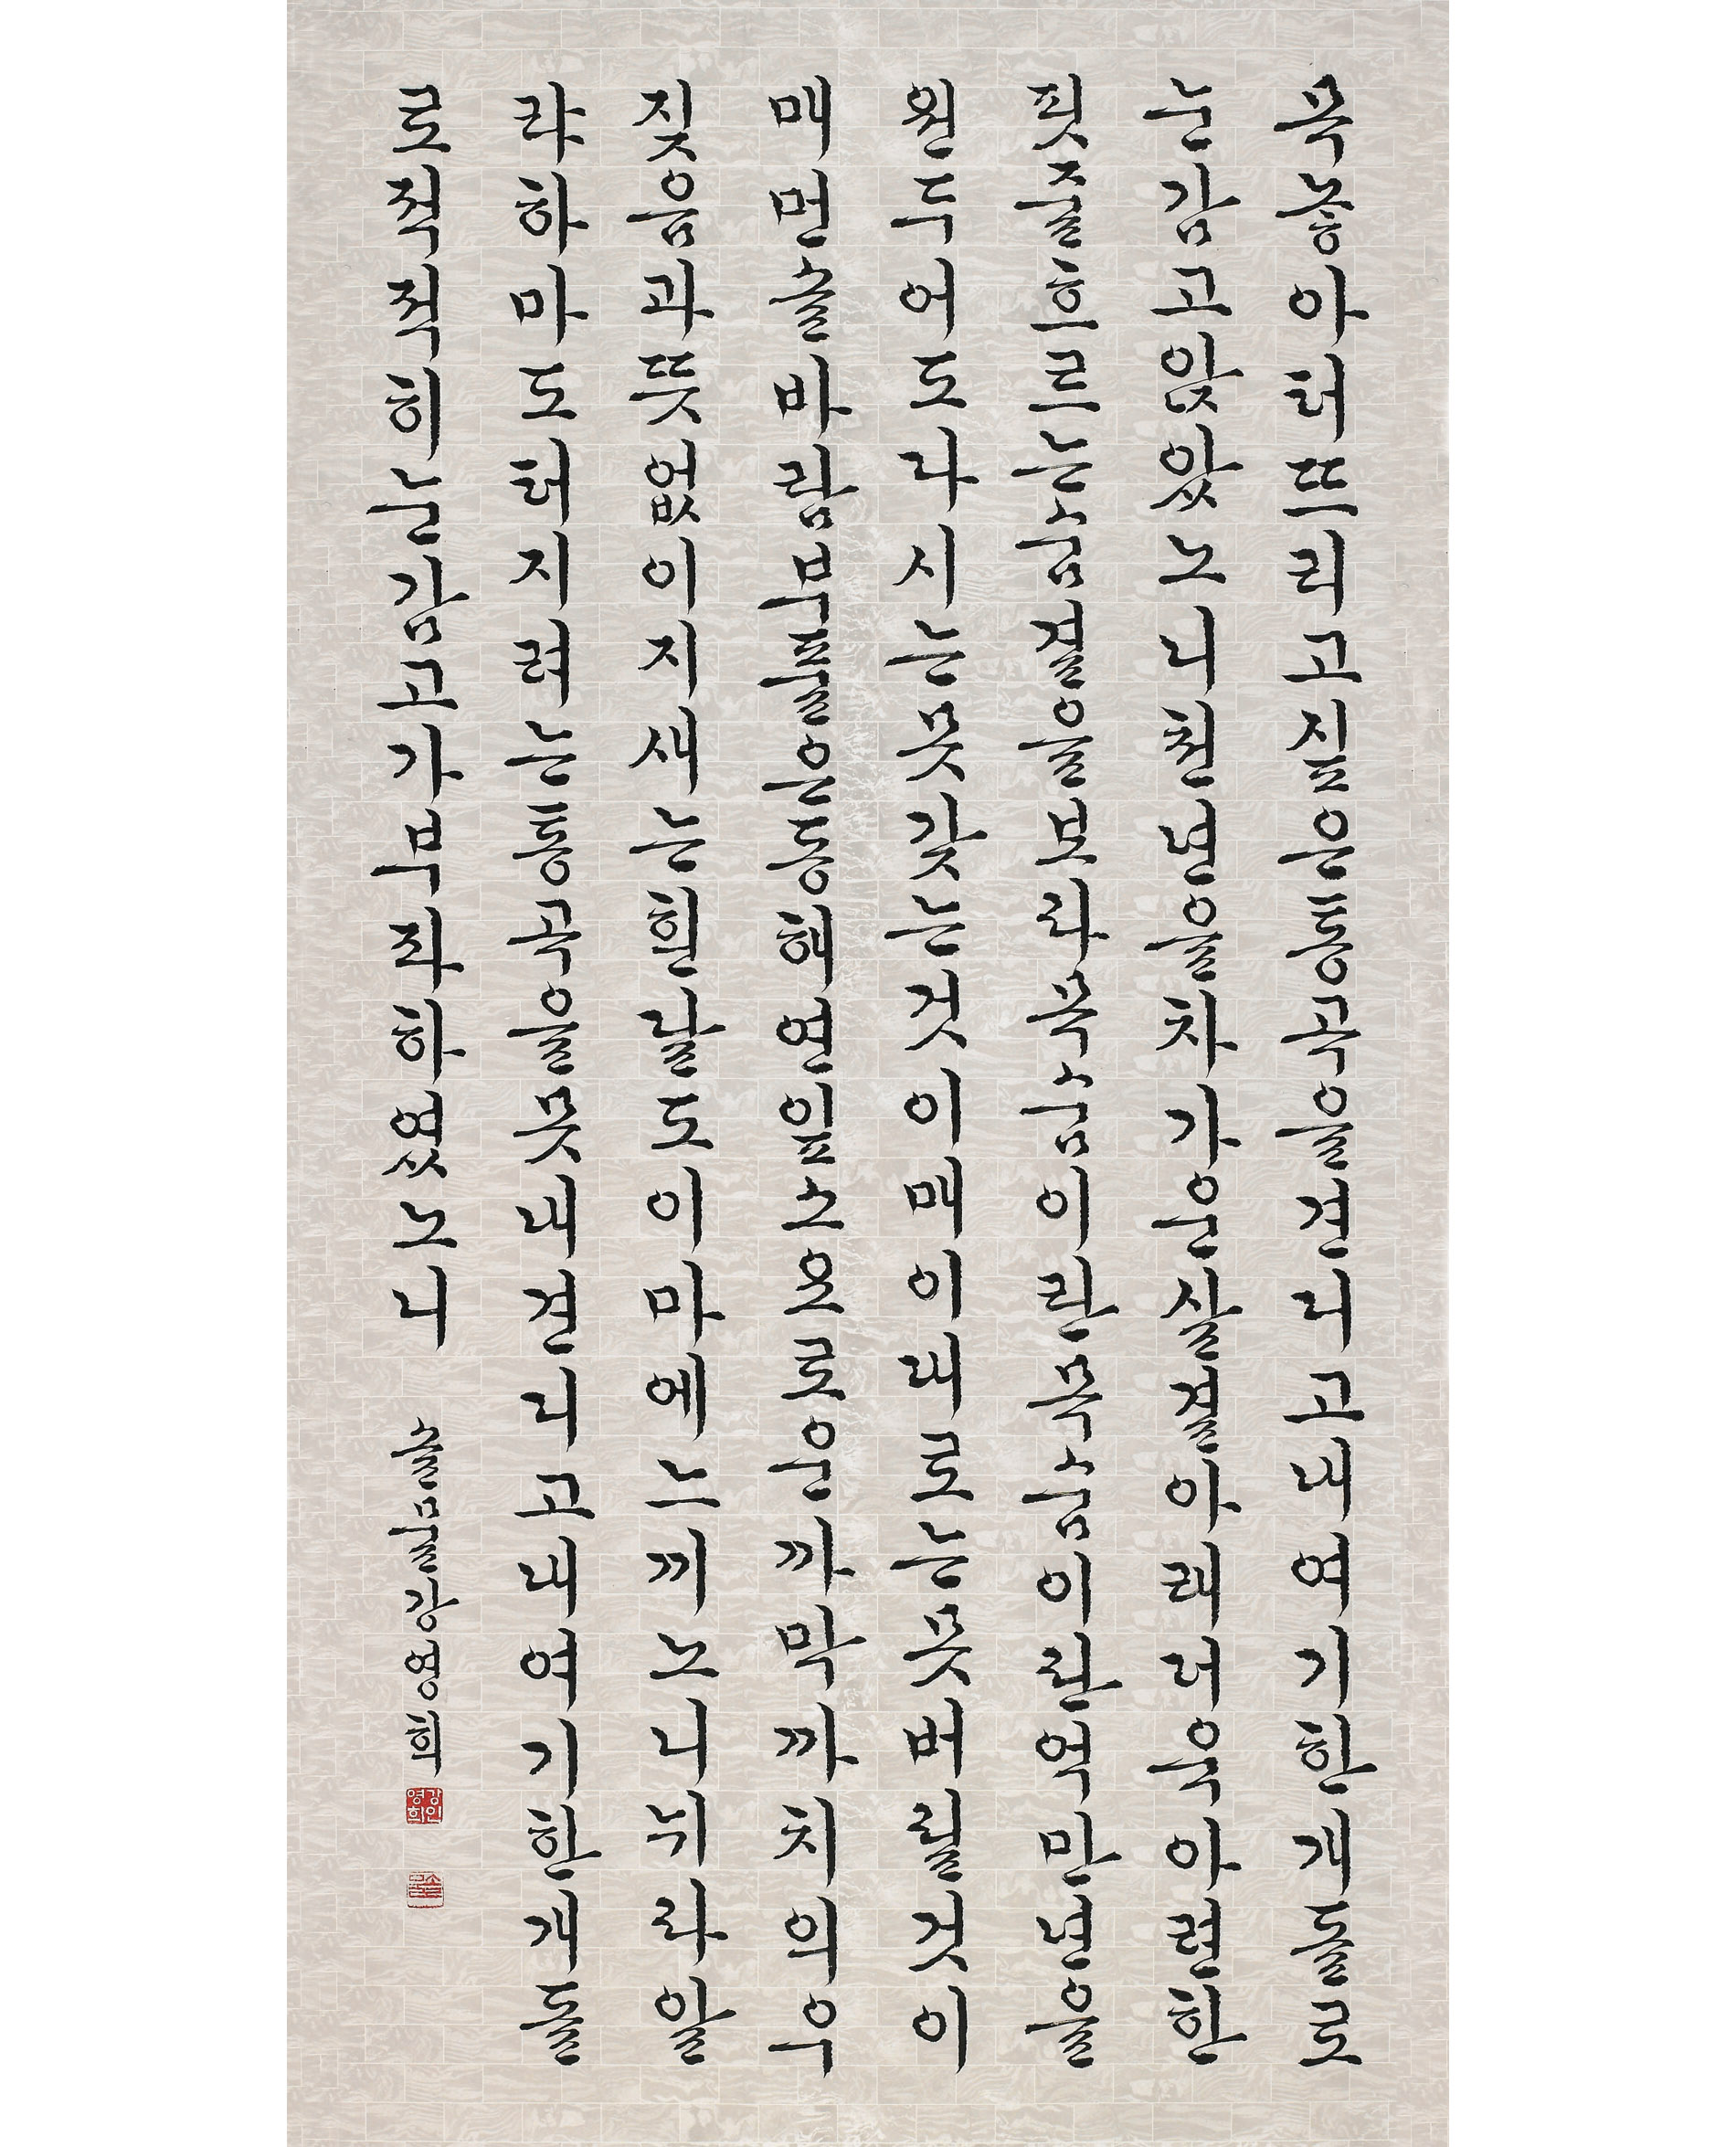 목놓아터뜨리고싶은통곡을견디고내여기한개돌로
눈감고앉았노니천년을차가운살결아래더욱아련한
핏줄흐르는숨결을보라목숨이란목숨이란억만년을
원두어도다시는못갖는것이매이대로는못버릴것이
매먼솔바람부풀은동해연잎소요로운까막까치의우
짖음과뜻없이지새는흰달도이마에느끼노니뉘라알
랴하마도터지려는통곡을못내견디고내여기한개돌
로적적히눈감고가부좌하였노니
솔믈강영희
강인영희